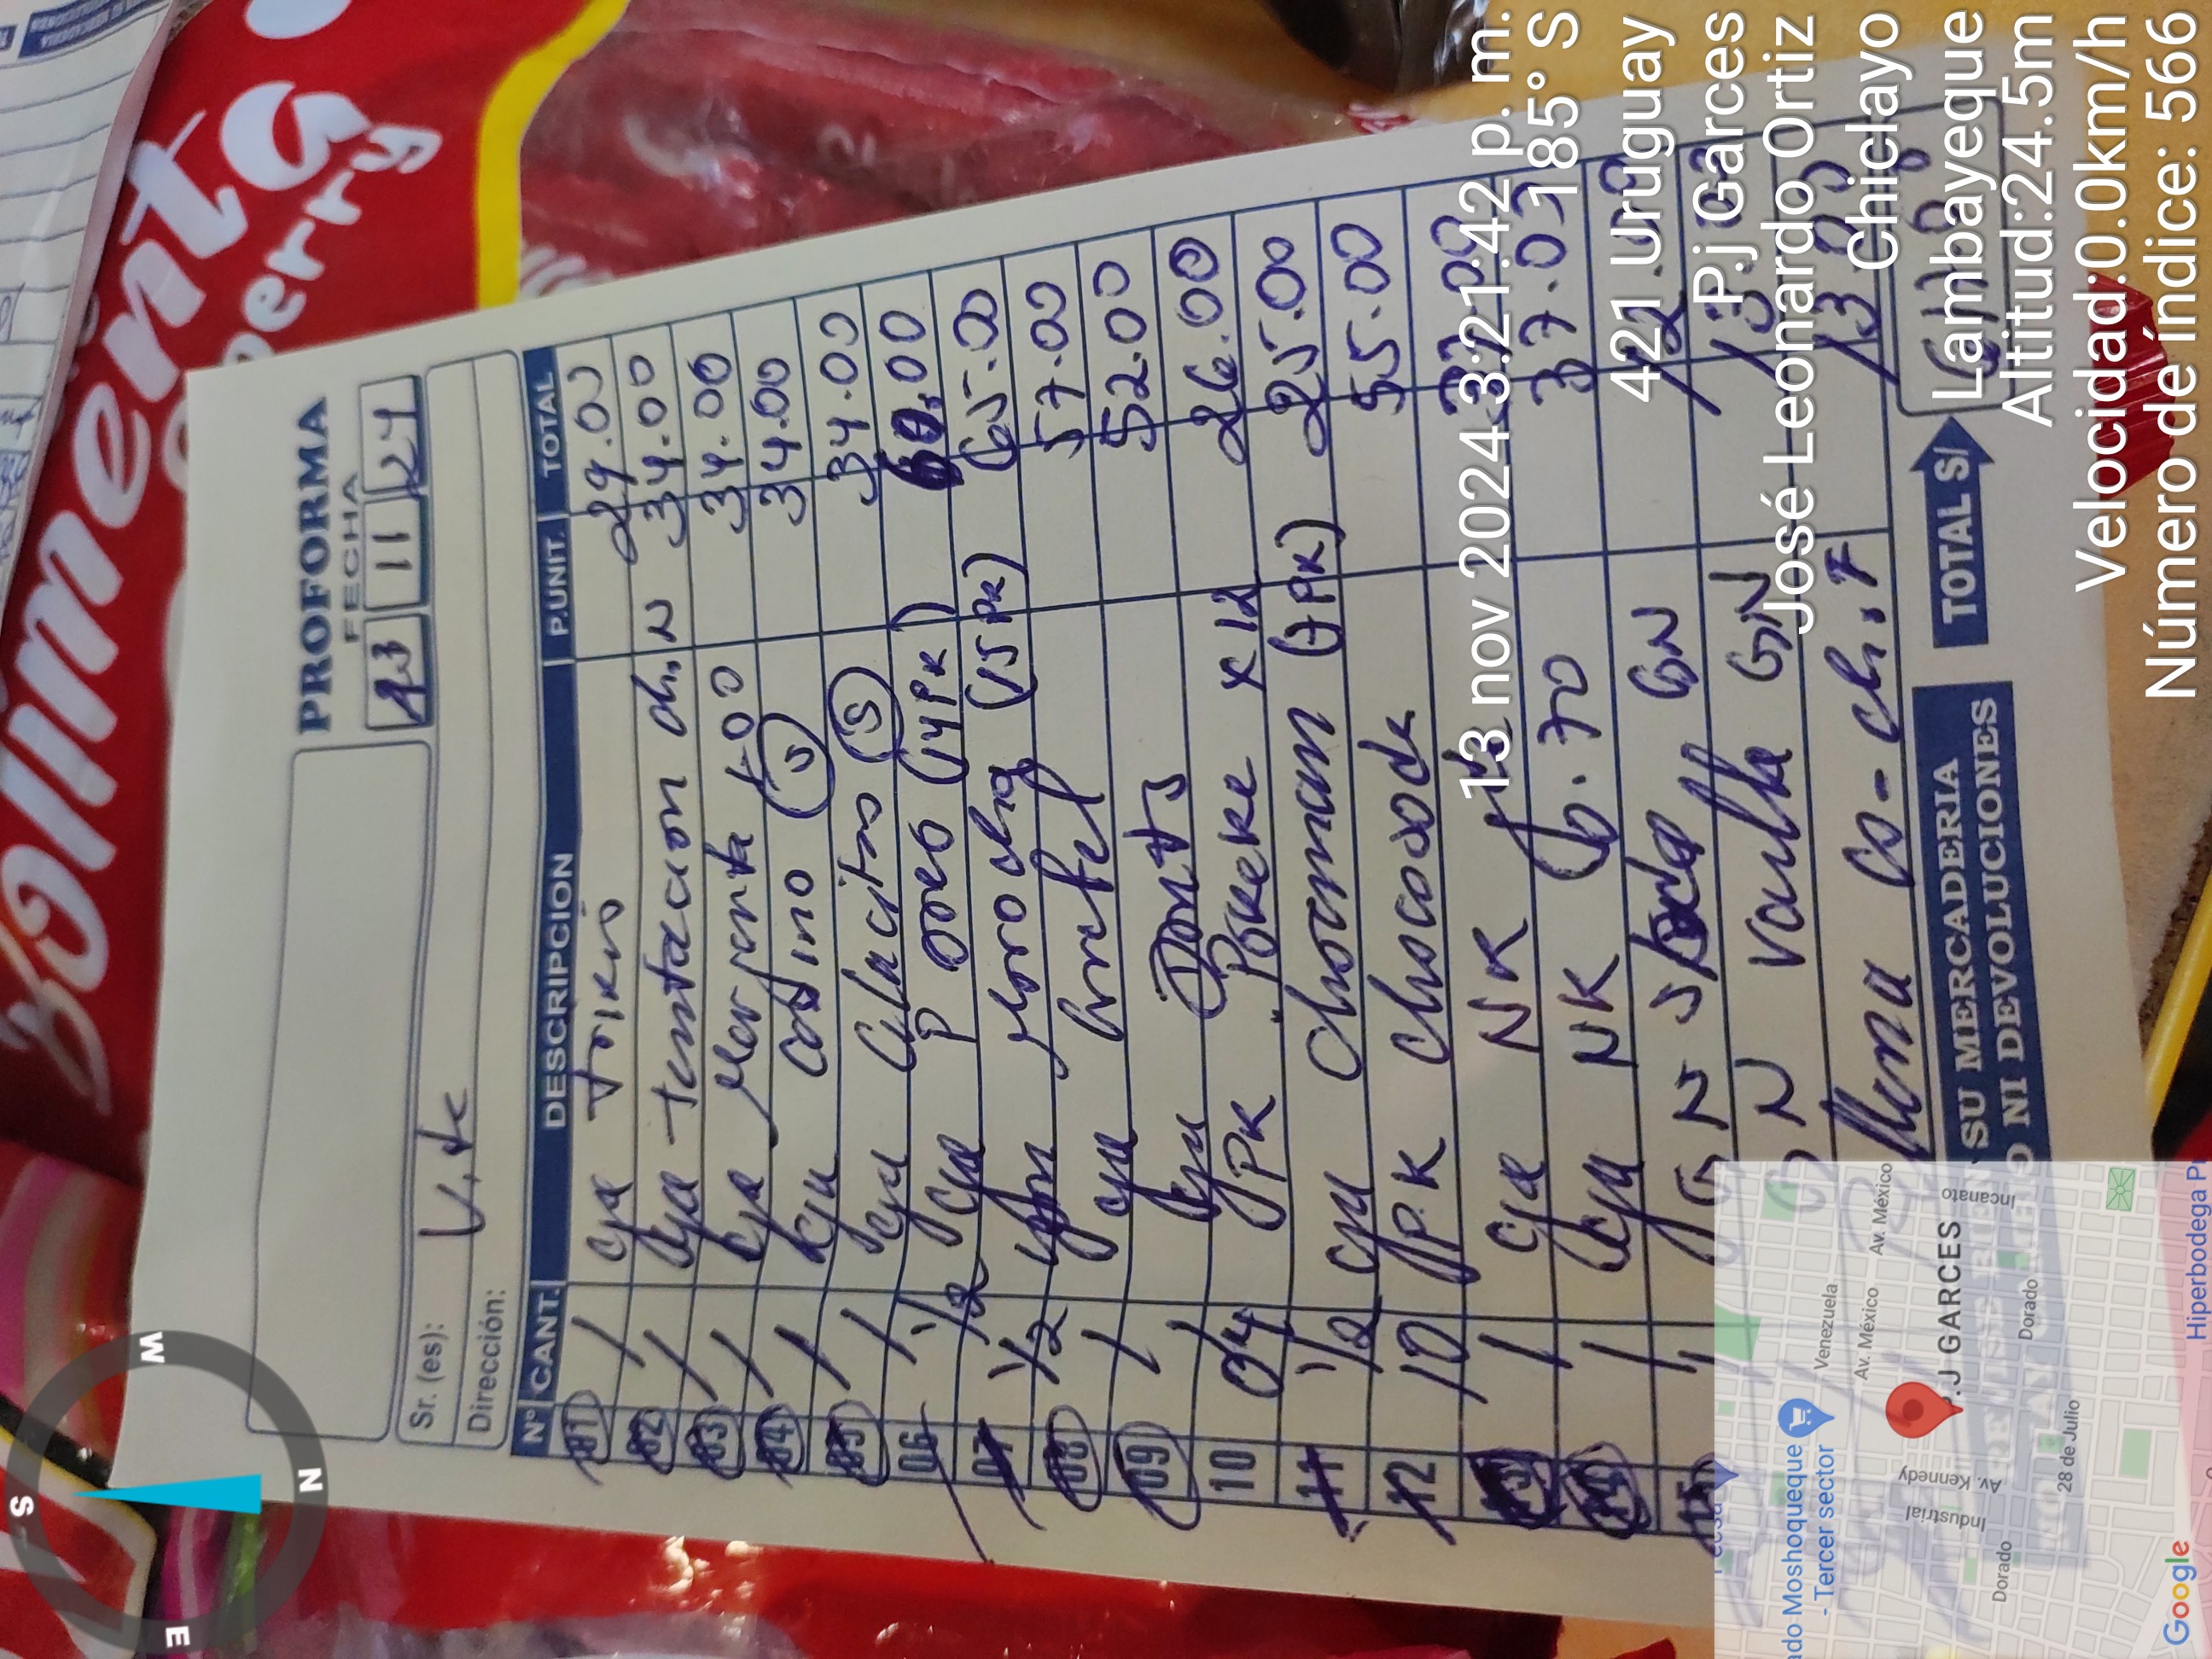 S
W
E
N
Bolimenta
berry
PROFORMA
FECHA
13 11 24
Sr. (es): Vite
Dirección:
Nº CANT. DESCRIPCION P.UNIT. TOTAL
01 1 cja trikis 29.00
02 1 cja tentacion ch. N 34.00
03 1 cja Margarita 1.00 34.00
04 1 cja Casino (s) 34.00
05 1 cja Glacitas (S) 34.00
06 1/2 cja P oreo (14PK) 60.00
07 1/2 cja Morocha (15PK) 65.00
08 1 cja Gretel 57.00
09 1 cja Donuts 52.00
10 04 PK Pokeke x 12 26.00
11 1/2 cja Chocman (7PK) 25.00
12 10 PK chocosoda 55.00
13 1 cja NK 37.00
14 1 cja NK 0.70 37.00
15 1 GN soda GN 12.00
GN vainilla GN 13.00
Rellena co-ch. F 13.00
REVISE BIEN SU MERCADERIA
NO HAY CAMBIO NI DEVOLUCIONES
TOTAL S/
13 nov 2024 3:21:42 p. m.
185° S
421 Uruguay
P.j Garces
José Leonardo Ortiz
Chiclayo
Lambayeque
Altitud:24.5m
Velocidad:0.0km/h
Número de índice: 566
Pecsa
ado Moshoqueque
- Tercer sector
Venezuela
Av. México
Av. México
Industrial
Av. Kennedy
P.J GARCES
Incanato
Dorado
Dorado
28 de Julio
Google
Hiperbodega Pr